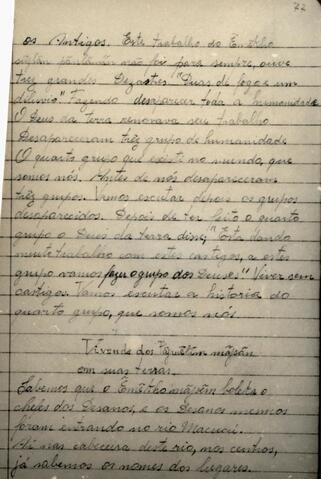 72
os Antigos. Este trabalho do Emëkho
não foi para sempre, ouve
três grandes Dezastres "Duas de fogo e um
diluvio" fazendo desaparecer toda a humanidade
O Deus da terra renovava seu trabalho
Desapareceram três grupo de humanidade
O quarto grupo que existe no mundo, que
somos nós. Antes de nós desapareceram
três grupos. Vamos escutar depois os grupos
desaparecidos. Depois de ter feito o quarto
grupo o Deus da terra disse; "Está dando
muito trabalho com estes castigos, a este
grupo vamos fazer o grupo dos Deuses." Viver sem
castigos. Vamos escutar a historia do
quarto grupo, que somos nós.
Vivenda dos
em suas terras.
Sabemos que o
chefes dos Desanos, e os Desanos mesmos
foram entrando no rio Macucú.
Ali nas cabeceira deste rio, nos centros,
já sabemos os nomes dos lugares.